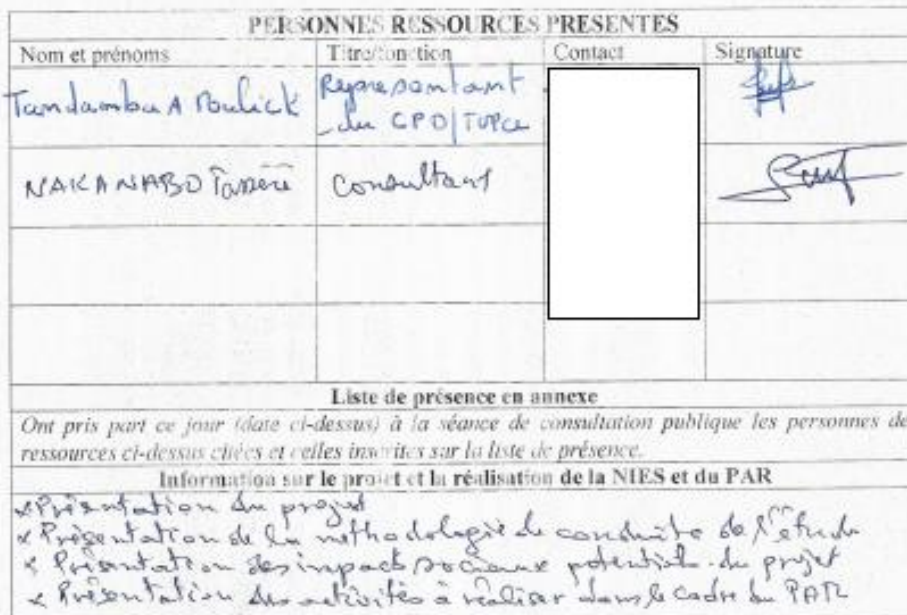 PERSONNES RESSOURCES PRESENTES
Nom et prénoms Titre/fonction Contact Signature
Tandamba A Poulick Représentant
du CPD/
NAKANABO Consultant
Liste de présence en annexe
Ont pris part ce jour (date ci-dessus) à la séance de consultation publique les personnes de
ressources ci-dessus citées et celles inscrites sur la liste de présence.
Information sur le projet et la réalisation de la NIES et du PAR
x Présentation du projet
x Présentation de la méthodologie de conduite de l'étude
x Présentation des impacts sociaux potentiels du projet
x Présentation des activités à réaliser dans le cadre du PAR